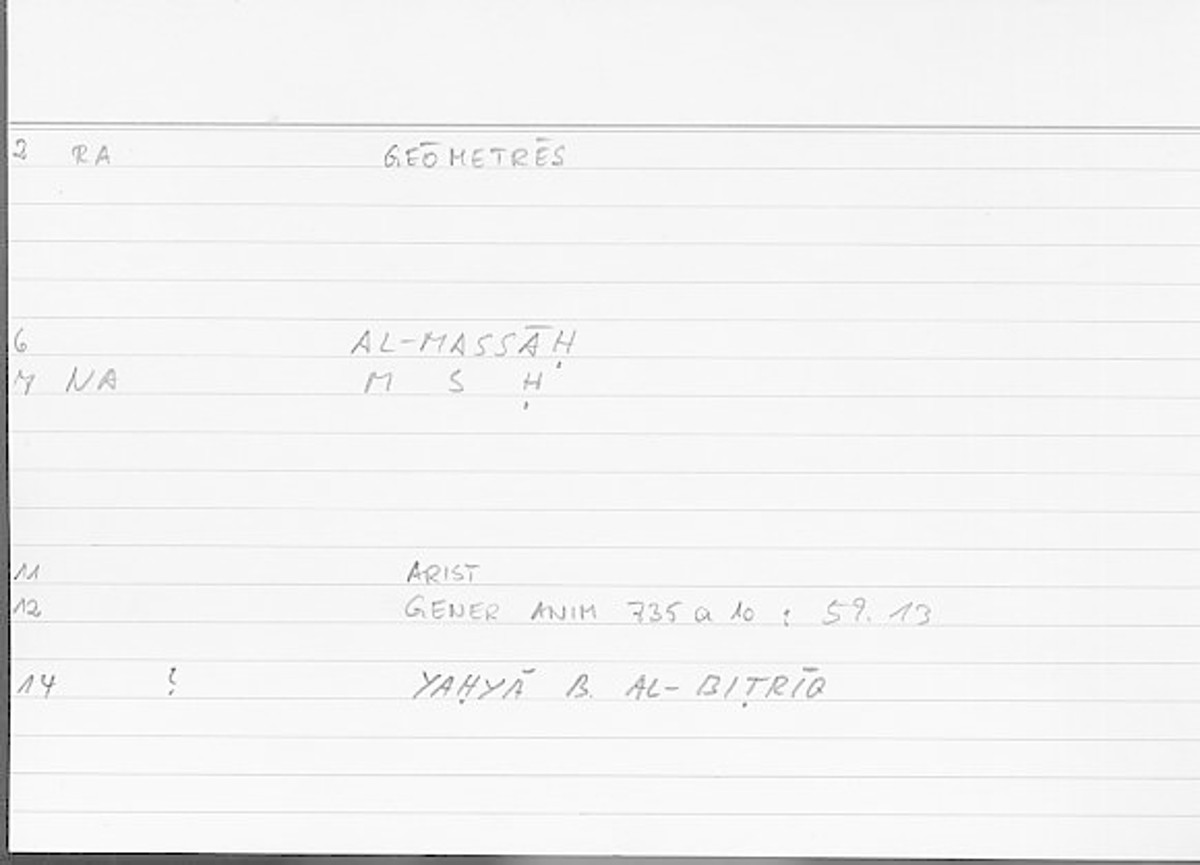 2 RA GEŌMETRĒS
6 AL-MASSĀḤ
7 NA M S Ḥ
11 ARIST
12 GENER ANIM 735 a 10 : 59. 13
14 ? YAḤYĀ B. AL-BIṬRĪQ